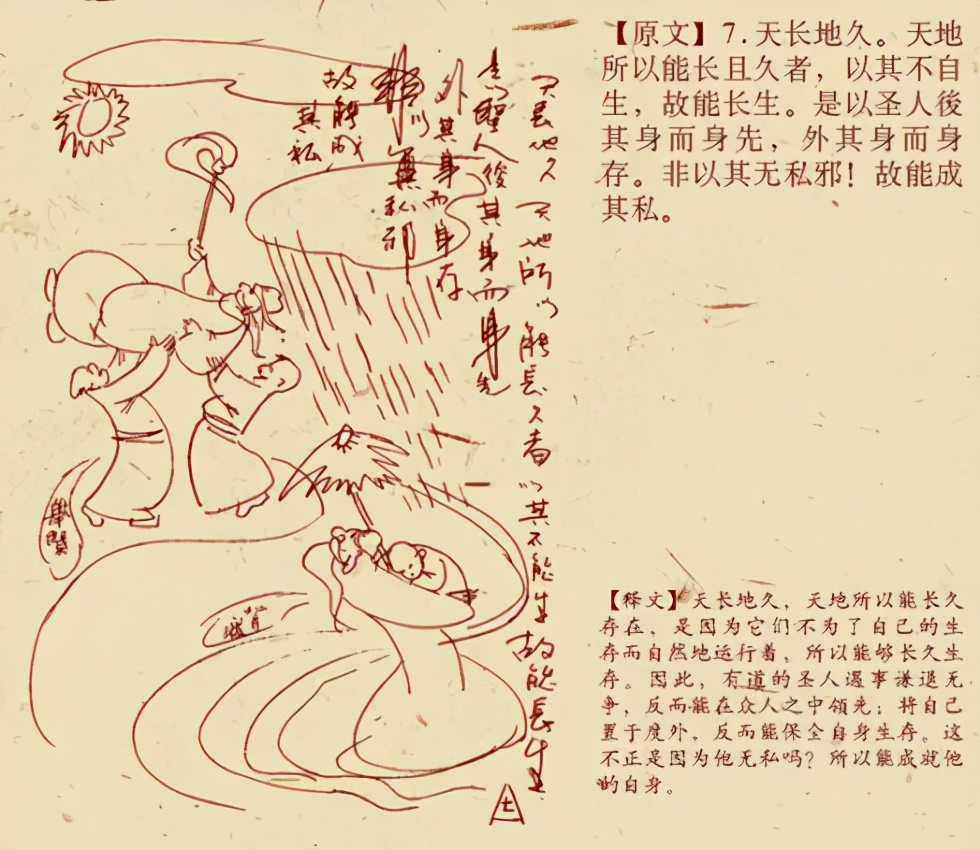 【原文】7.天长地久。天地
所以能长且久者，以其不自
生，故能长生。是以圣人後
其身而身先，外其身而身
存。非以其无私邪！故能成
其私。
【释文】天长地久，天地所以能长久
存在，是因为它们不为了自己的生
存而自然地运行着，所以能够长久生
存。因此，有道的圣人遇事谦退无
争，反而能在众人之中领先；将自己
置于度外，反而能保全自身生存。这
不正是因为他无私吗？所以能成就他
的自身。
天長地久 天地所以能長久者以其不能生故能長生
是以聖人後其身而身先
外其身而身存
非以其無私邪
故能成
其私
舉賢